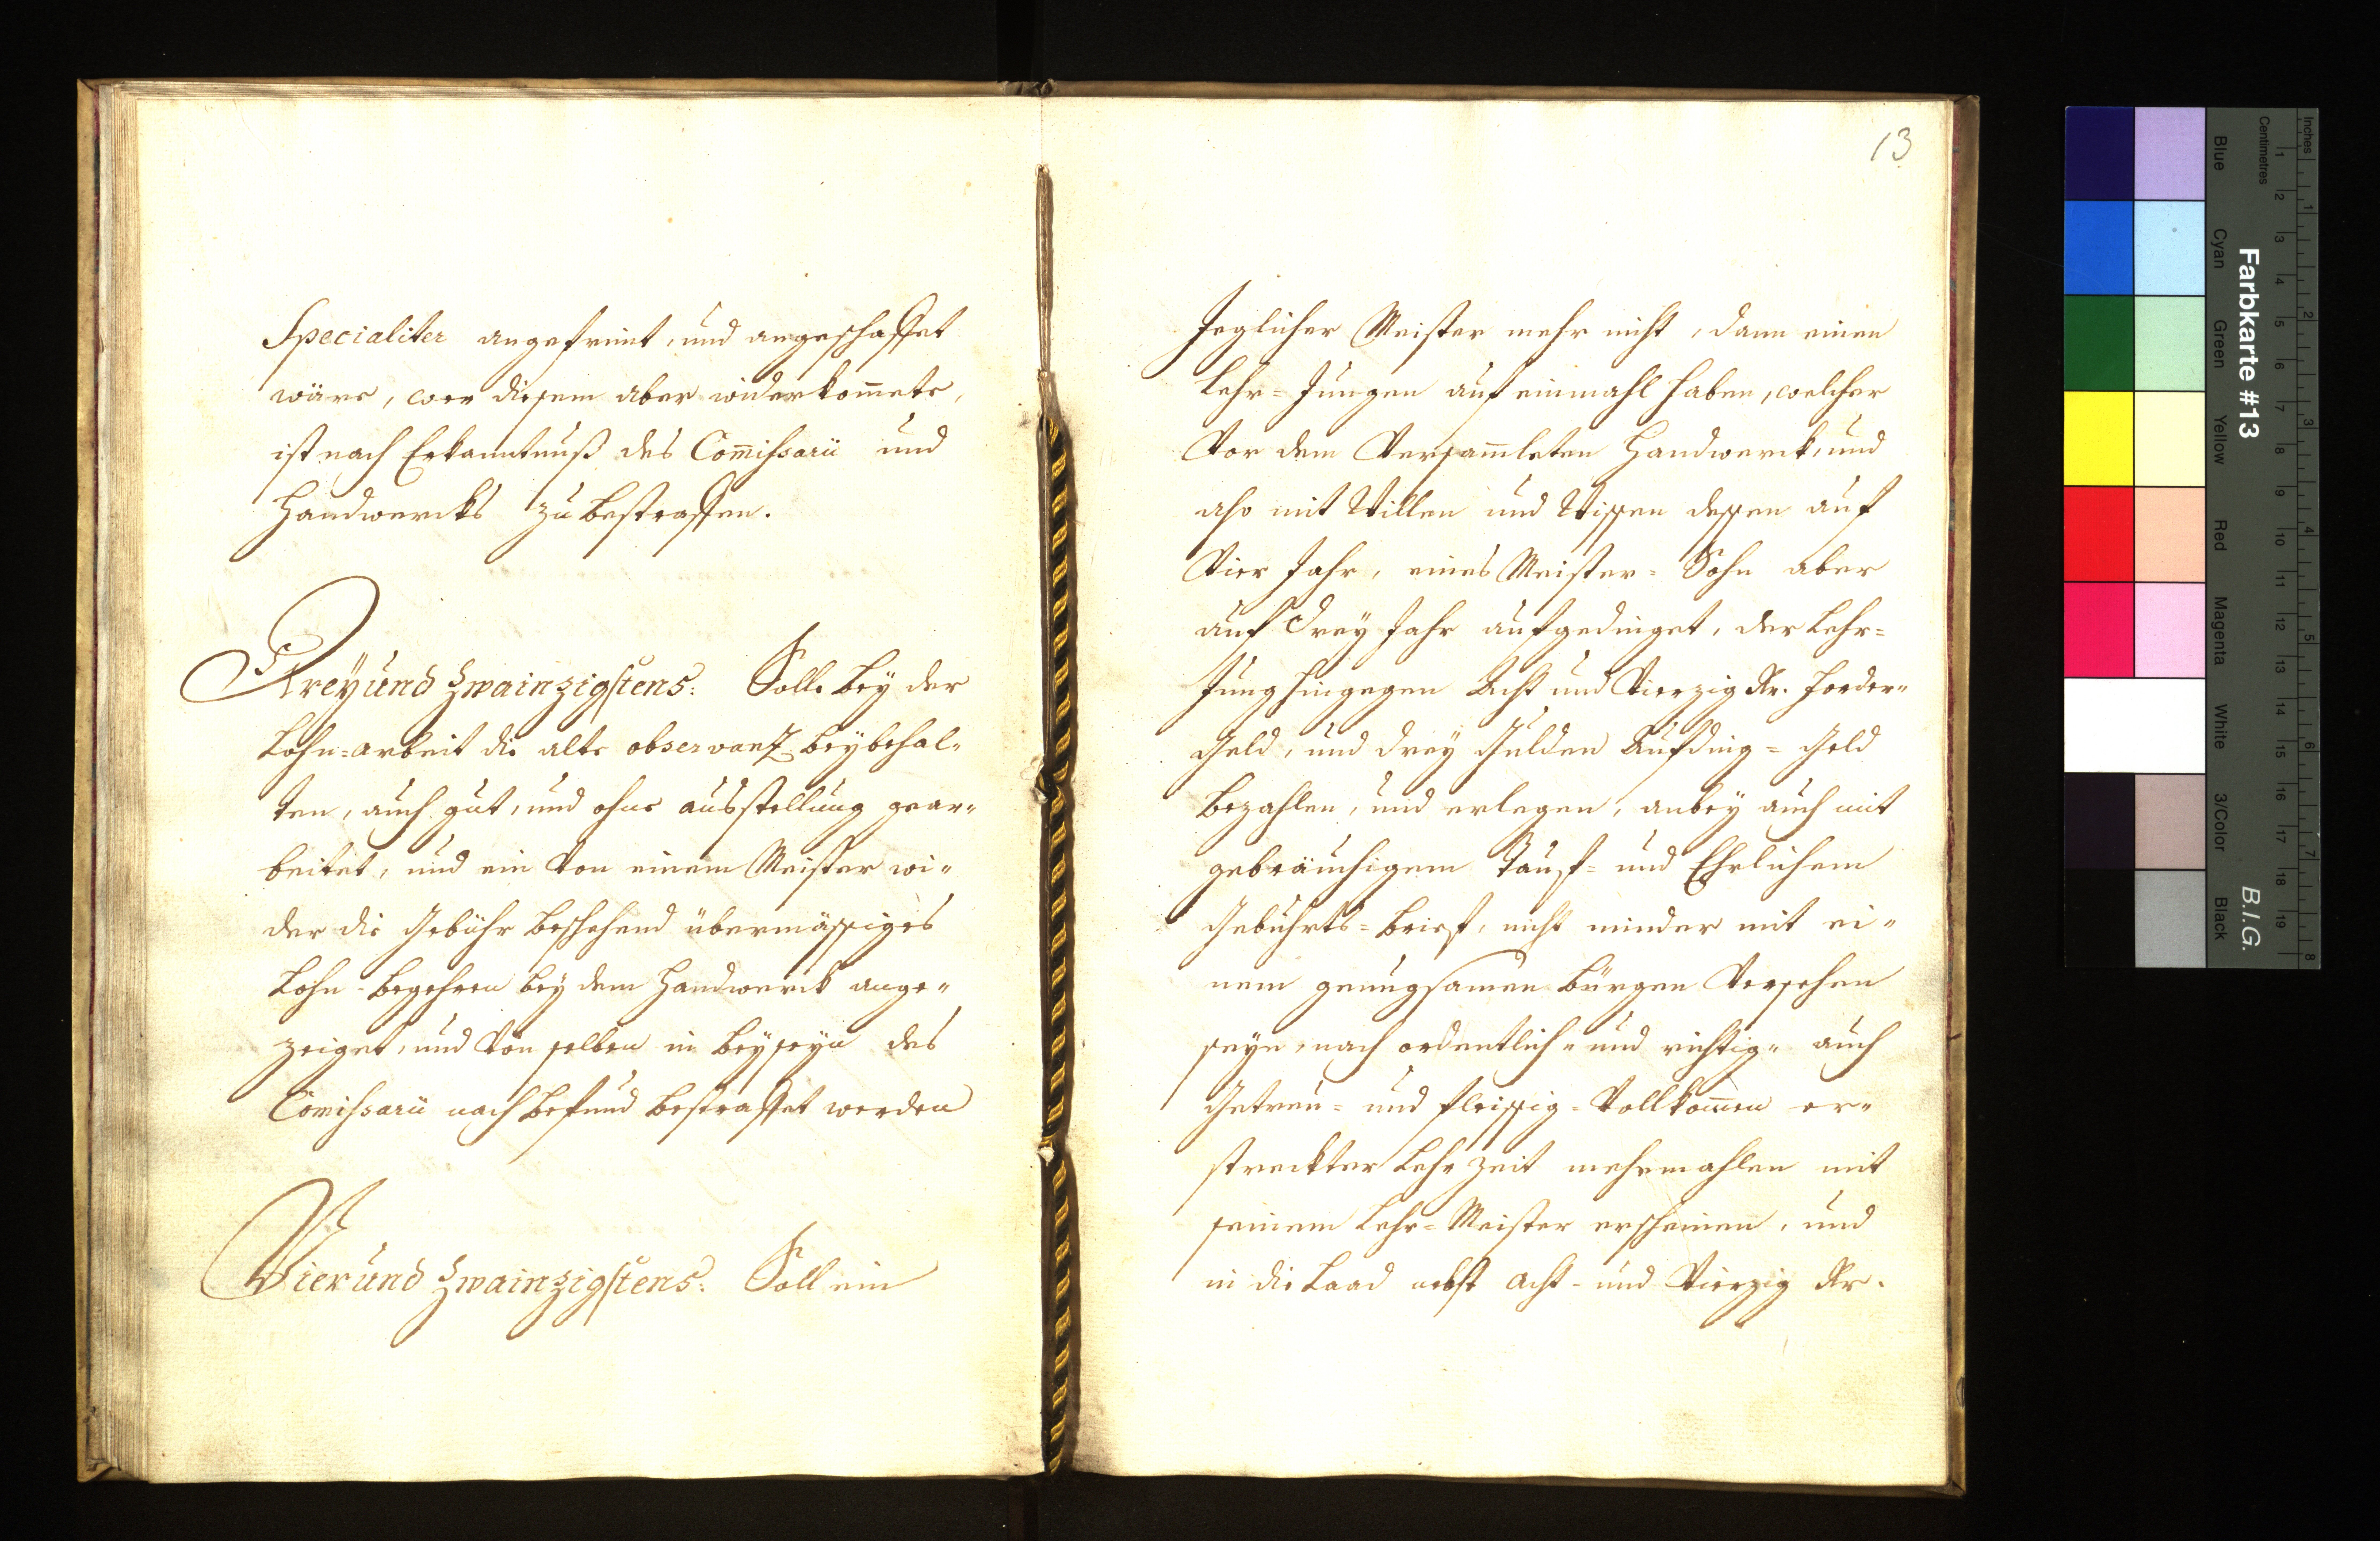 Specialiter angefrimt, und angeschaffet
wäre, wer diesem aber widerkom̅ete,
ist nach Erkanntnuß des Com̅ißarii und
Handwercks zu bestraffen.
Dreyund Zwainzigstens: Solle bey der
Lohn=arbeit die alte observanz beybehal„
ten, auch gut, und ohne ausstellung gear„
beitet, und ein von einem Meister wi„
der die Gebühr beschehend übermässiges
Lohn=begehren bey dem Handwerck ange„
zeiget, und von selben in beyseyn des
Com̅ißarii nach befund bestraffet werden
Vierund Zwainzigstens: Soll ein
13
Jeglicher Meister mehr nicht, dann einen
Lehr=Jungen auf einmahl haben, welcher
Vor dem Versam̅leten Handwerck, und
also mit Willen und Wissen dessen auf
Vier Jahr, eines Meister=Sohn aber
auf drey Jahr aufgedinget, der Lehr=
Jung hingegen Acht und Vierzig Kr. Forder„
Geld, und drey Gulden Aufding=Geld
bezahlen, und erlegen, anbey auch mit
gebräuchigem Tauf= und Ehrlichem
Gebuhrts=brief, nicht minder mit ei„
nem genugsamen bürgen Versehen
seyn, nach ordentlich„ und richtig„ auch
Getreu= und fleissig=Vollkom̅en er„
streckter Lehr zeit mehrmahlen mit
seinem Lehr=Meister erscheinen, und
in die Laad nebst acht= und Vierzig Kr.
Farbkarte #13
B.I.G.
Inches
Centimetres
1 2 3 4 5 6 7 8
1 2 3 4 5 6 7 8 9 10 11 12 13 14 15 16 17 18 19
Blue
Cyan
Green
Yellow
Red
Magenta
White
3/Color
Black